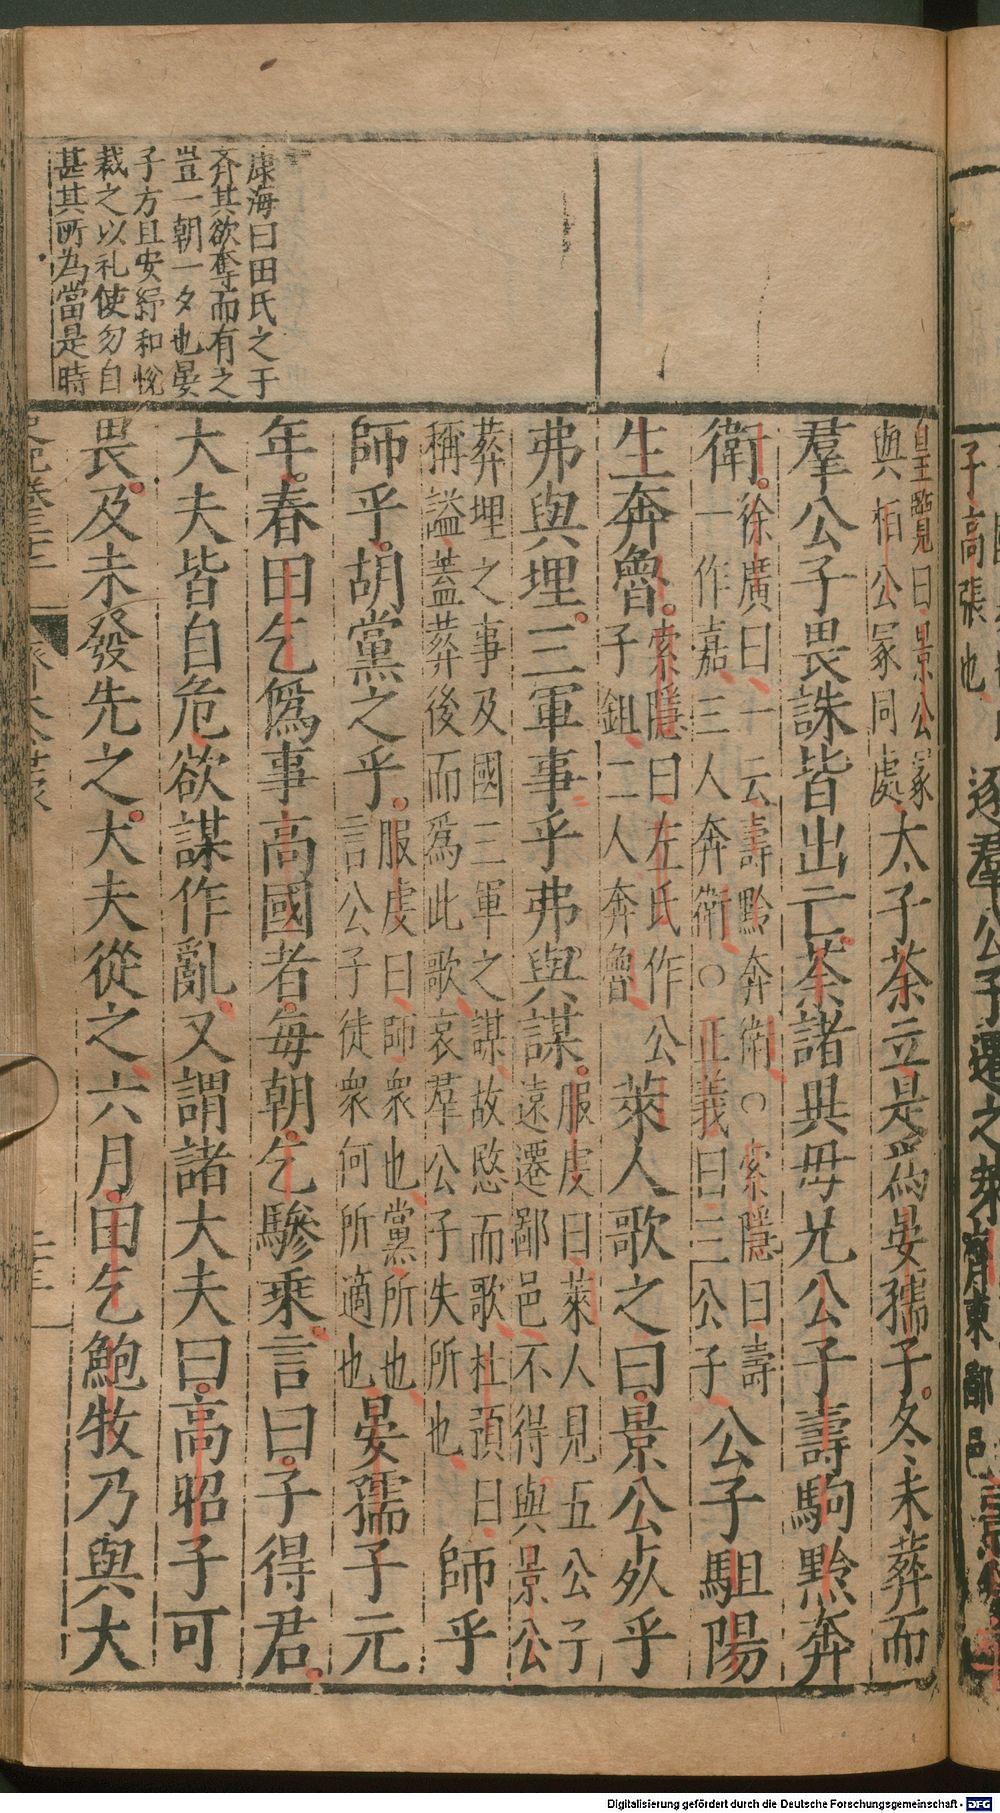 子高張也
逐羣公子遷之萊
齊東鄙邑
康海曰田氏之于
齊其欲奪而有之
豈一朝一夕也晏
子方且安紓和悅
裁之以礼使勿自
甚其所為當是時
皇覽曰景公冢
與柏公冢同處
太子荼立是爲晏孺子。冬未葬而
羣公子畏誅皆出亡。荼諸異母兄公子壽駒黔奔
衛。
徐廣曰一云壽黔奔衛○索隱曰壽
一作嘉三人奔衛○正義曰三公子
公子駔陽
生奔魯。
索隱曰左氏作公
子鉏二人奔魯
萊人歌之曰。景公死乎
弗與埋。三軍事乎弗與謀。
服虔曰萊人見五公子
遠遷鄙邑不得與景公
葬埋之事及國三軍之謀故愍而歌杜預曰
稱謚蓋葬後而爲此歌哀羣公子失所也
師乎
師乎。胡黨之乎。
服虔曰師衆也黨所也
言公子徒衆何所適也
晏孺子元
年。春田乞僞事高國者。每朝。乞驂乘。言曰。子得君。
大夫皆自危欲謀作亂。又謂諸大夫曰。高昭子可
畏。及未發先之。大夫從之。六月。田乞鮑牧乃與大
Digitalisierung gefördert durch die Deutsche Forschungsgemeinschaft - DFG